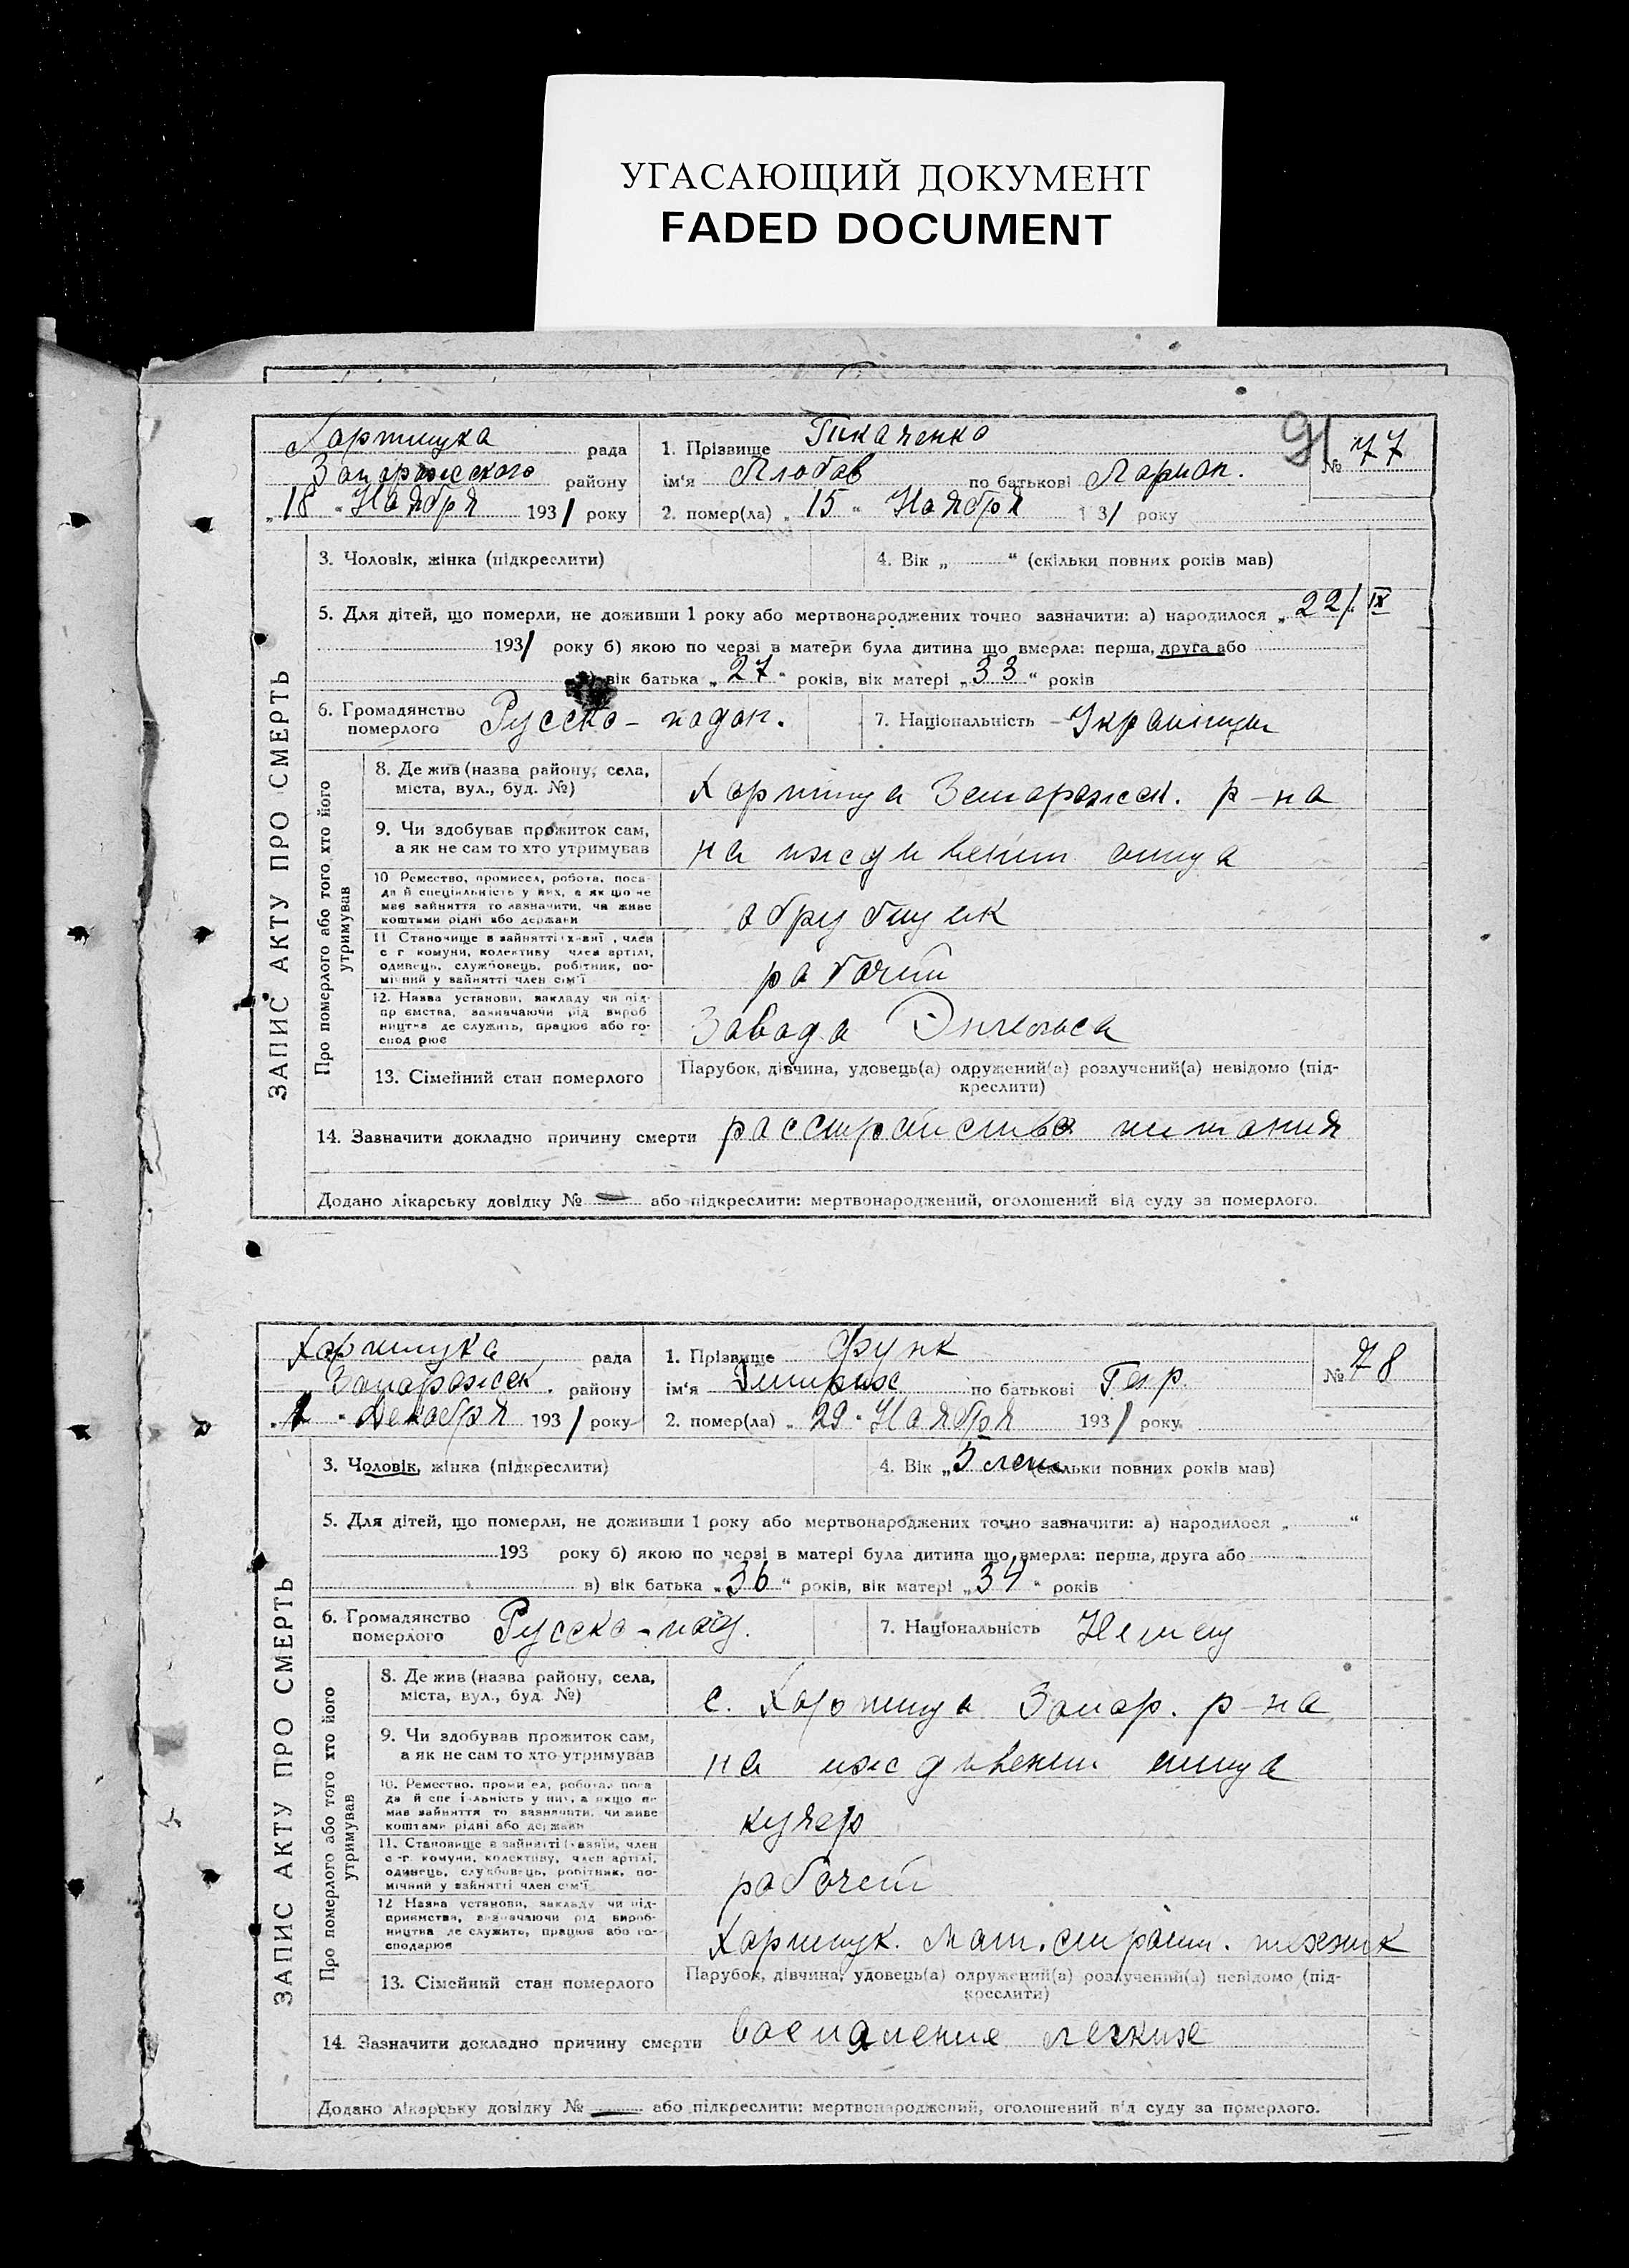 УГАСАЮЩИЙ ДОКУМЕНТ
FADED DOCUMENT
91
Хортицка рада
Запорожского району
„18 “ Ноября 1931 року
1. Прізвище Ткаченко
ім'я Любов по батькові Ларион.
2. помер(ла) „ 15 “ Ноября 1 31 року
№ 77
ЗАПИС АКТУ ПРО СМЕРТЬ
3. Чоловік, жінка (підкреслити)
4. Вік „ “ (скільки повних років мав)
5. Для дітей, що померли, не доживши 1 року або мертвонароджених точно зазначити: а) народилося „ 22/ IX
1931 року б) якою по черзі в матери була дитина що вмерла: перша, друга або
вік батька „ 27 “ років, вік матері „ 33 “ років
6. Громадянство померлого Русско-подан.
7. Національність Украинцы
Про померлого або того хто його утримував
8. Де жив (назва району, села, міста, вул., буд. №)
Хортица Запорожск. р-на
9. Чи здобував прожиток сам, а як не сам то хто утримував
на иждивении отца
10 Ремество, промисел, робота, поса-
да й спеціяльність у них, а як що не
має зайняття то зазначити, чи живе
коштами рідні або держави
обрубщик
11 Становище в зайнятті , член
с г комуни, колективу член артілі,
одинець, службовець, робітник, по-
мічний у зайнятті член сім'ї
рабочий
12. Назва установи, закладу чи під-
пр ємства, зазначаючи рід вироб
ництва де служить, працює або го-
спод рює
Завода Энгельса
13. Сімейний стан померлого
Парубок, дівчина, удовець(а) одружений(а) розлучений(а) невідомо (під-
креслити)
14. Зазначити докладно причину смерти расстройство питания
Додано лікарську довідку № — або підкреслити: мертвонароджений, оголошений від суду за померлого.
Хортицка рада
Запорожск. району
„1 “ Декабря 1931 року
1. Прізвище Функ
ім'я Гинрих по батькові Гер.
2. помер(ла) „ 29 “ Ноября 1931 року
№ 78
ЗАПИС АКТУ ПРО СМЕРТЬ
3. Чоловік, жінка (підкреслити)
4. Вік „ 5 лет (скільки повних років мав)
5. Для дітей, що померли, не доживши 1 року або мертвонароджених точно зазначити: а) народилося „ “
193 року б) якою по черзі в матері була дитина що вмерла: перша, друга або
в) вік батька „ 36 “ років, вік матері „ 34 “ років
6. Громадянство померлого Русско-под.
7. Національність Немец
Про померлого або того хто його утримував
8. Де жив (назва району, села, міста, вул., буд. №)
с. Хортица Запор. р-на
9. Чи здобував прожиток сам, а як не сам то хто утримував
на иждивении отца
10. Ремество, промисел, робота, поса
да й спеціяльність у них, а якщо не
має зайняття то зазначити, чи живе
коштами рідні або держави
кучер
11. Становище в зайнятті , член
с -г. комуни, колективу, член артілі,
одинець, службовець, робітник, по-
мічний у зайнятті член сім'ї
рабочий
12 Назва установи, закладу чи під-
приємства, зазначаючи рід вироб-
ництва де служить, працює або го-
сподарює
Хортицк. техник
13. Сімейний стан померлого
Парубок, дівчина, удовець(а) одружений(а) розлучений(а) невідомо (під-
креслити)
14. Зазначити докладно причину смерти воспаление легких
Додано лікарську довідку № — або підкреслити: мертвонароджений, оголошений від суду за померлого.